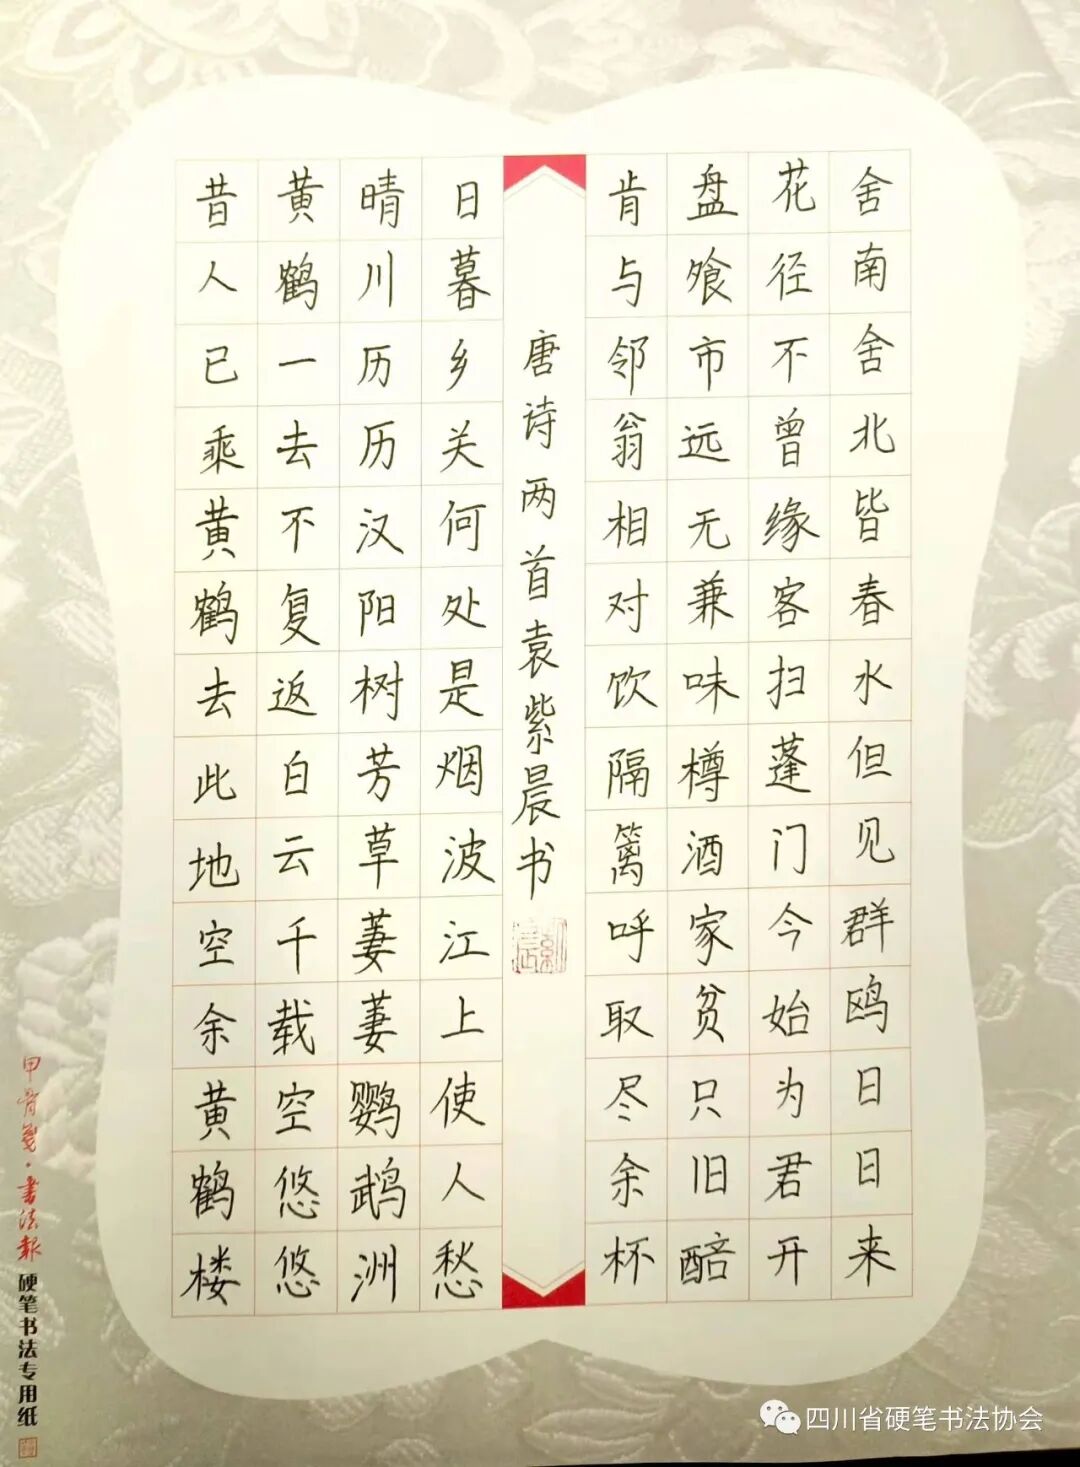 舍南舍北皆春水但见群鸥日日来
花径不曾缘客扫蓬门今始为君开
盘飱市远无兼味樽酒家贫只旧醅
肯与邻翁相对饮隔篱呼取尽余杯
唐诗两首袁紫晨书
昔人已乘黄鹤去此地空余黄鹤楼
黄鹤一去不复返白云千载空悠悠
晴川历历汉阳树芳草萋萋鹦鹉洲
日暮乡关何处是烟波江上使人愁
甲骨笺·书法報 硬笔书法专用纸
四川省硬笔书法协会